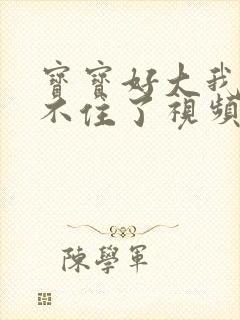 寶寶好大我
不住了視頻
陳學軍